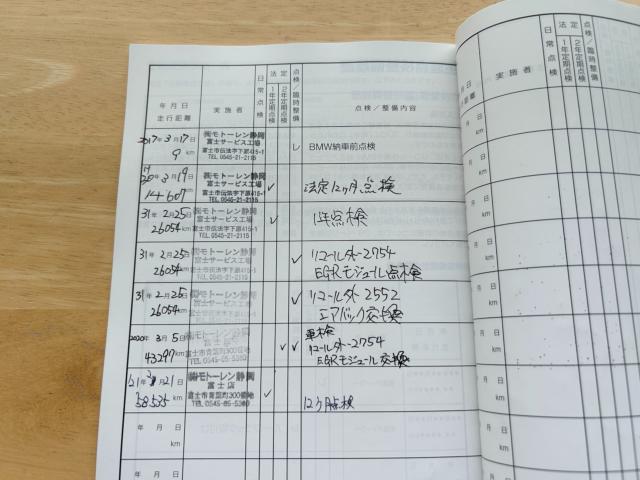 年月日
走行距離
実施者
日常点検
法定
1年定期点検
2年定期点検
点検/臨時整備
点検/整備内容
2017年3月17日
9 km
㈱モトーレン静岡
富士サービス工場
富士市伝法字下原415-1
TEL 0545-21-2115
レ
BMW納車前点検
3月19日
14607
㈱モトーレン静岡
富士サービス工場
富士市伝法字下原415-1
TEL 0545-21-2115
✓
法定12ヶ月点検
31年2月25日
26054 km
㈱モトーレン静岡
富士サービス工場
富士市伝法字下原415-1
TEL 0545-21-2115
✓
1年点検
31年2月25日
26054 km
㈱モトーレン静岡
富士サービス工場
富士市伝法字下原415-1
TEL 0545-21-2115
✓
リコール外-2754
EGRモジュール点検
31年2月25日
26054 km
㈱モトーレン静岡
富士サービス工場
富士市伝法字下原415-1
TEL 0545-21-2115
✓
リコール外2552
エアバック交換
2020年3月5日
43297 km
㈱モトーレン静岡
富士店
富士市青葉町300番地
TEL 0545-65-5300
✓✓
車検
リコール外-2754
EGRモジュール交換
月21日
58535 km
㈱モトーレン静岡
富士店
富士市青葉町300番地
TEL 0545-65-5300
✓
12ヶ月点検
年月日
km
年月日
年月日
走行距離
実施者
日常点検
法定
1年定期点検
2年定期点検
点検/臨時整備
年月日
km
年月日
km
年月日
km
年月日
km
年月日
km
年月日
km
年月日
km
年月日
km
年月日